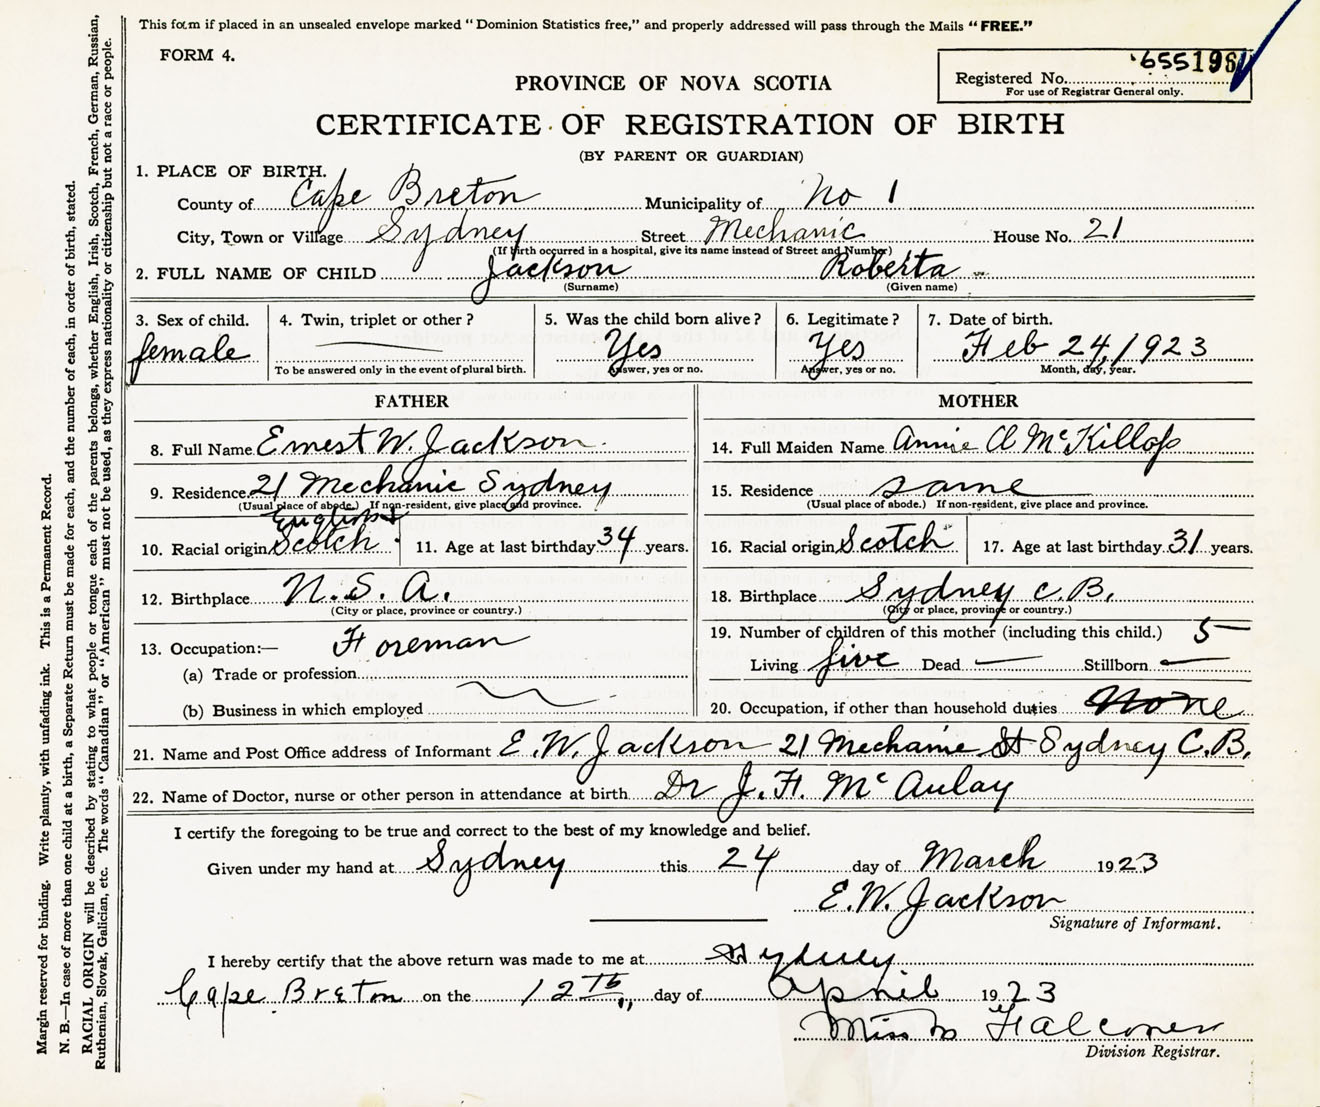 This form if placed in an unsealed envelope marked "Dominion Statistics free," and properly addressed will pass through the Mails "FREE."
FORM 4.
Registered No. 655196
For use of Registrar General only.
PROVINCE OF NOVA SCOTIA
CERTIFICATE OF REGISTRATION OF BIRTH
(BY PARENT OR GUARDIAN)
1. PLACE OF BIRTH.
County of Cape Breton Municipality of No 1
City, Town or Village Sydney Street Mechanic House No. 21
(If birth occurred in a hospital, give its name instead of Street and Number)
2. FULL NAME OF CHILD Jackson Roberta
(Surname) (Given name)
3. Sex of child. 4. Twin, triplet or other? 5. Was the child born alive? 6. Legitimate? 7. Date of birth.
female — Yes Yes Feb 24, 1923
To be answered only in the event of plural birth. Answer, yes or no. Answer, yes or no. Month, day, year.
FATHER MOTHER
8. Full Name Ernest W. Jackson. 14. Full Maiden Name Annie A McKillop
9. Residence. 21 Mechanic Sydney 15. Residence same
(Usual place of abode.) If non-resident, give place and province. (Usual place of abode.) If non-resident, give place and province.
English &
10. Racial origin Scotch 11. Age at last birthday 34 years. 16. Racial origin Scotch 17. Age at last birthday 31 years.
12. Birthplace N.S.A. 18. Birthplace Sydney C.B.
(City or place, province or country.) (City or place, province or country.)
13. Occupation:— Foreman 19. Number of children of this mother (including this child.) 5
(a) Trade or profession Living five Dead — Stillborn —
(b) Business in which employed 20. Occupation, if other than household duties None
21. Name and Post Office address of Informant E.W. Jackson 21 Mechanic St Sydney C.B.
22. Name of Doctor, nurse or other person in attendance at birth Dr J.H. McAulay
I certify the foregoing to be true and correct to the best of my knowledge and belief.
Given under my hand at Sydney this 24 day of March 1923
E.W. Jackson
Signature of Informant.
I hereby certify that the above return was made to me at Sydney
Cape Breton on the 12th day of April 1923
Miss M Falconer
Division Registrar.
Margin reserved for binding. Write plainly, with unfading ink. This is a Permanent Record.
N. B.—In case of more than one child at a birth, a Separate Return must be made for each, and the number of each, in order of birth, stated.
RACIAL ORIGIN will be described by stating to what people or tongue each of the parents belongs, whether English, Irish, Scotch, French, German, Russian,
Ruthenian, Slovak, Galician, etc. The words "Canadian" or "American" must not be used, as they express nationality or citizenship but not a race or people.